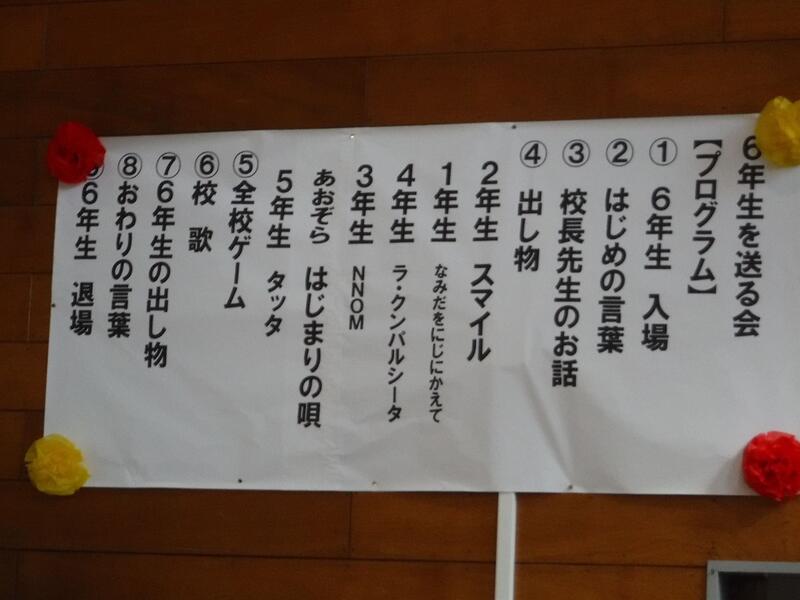 6年生を送る会
【プログラム】
① 6年生 入場
② はじめの言葉
③ 校長先生のお話
④ 出し物
2年生 スマイル
1年生 なみだをにじにかえて
4年生 ラ・クンパルシータ
3年生 NNOM
あおぞら はじまりの唄
5年生 タッタ
⑤全校ゲーム
⑥校 歌
⑦6年生の出し物
⑧おわりの言葉
⑨6年生 退場